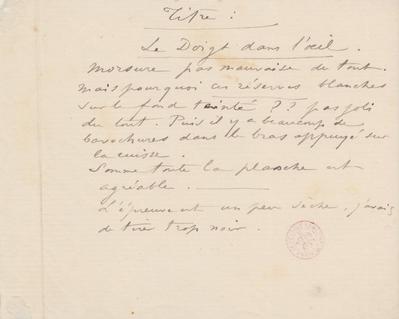 Titre :
Le Doigt dans l'œil.
Morsure pas mauvaise du tout.
Mais pourquoi ces réserves blanches
sur le fond teinté ?? pas joli
du tout. Puis il y a beaucoup de
bavochures dans le bras appuyé sur
la cuisse.
Somme toute la planche est
agréable.
L'épreuve est un peu sèche, j'avais
de tirer trop noir.